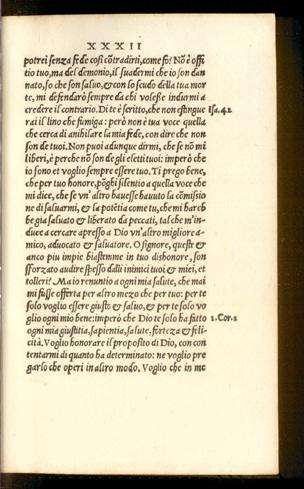 XXXII
potrei senza fede così cõtradirti, come fo? Nõ è offi
tio tuo, ma del demonio, il suadermi che io son dan
nato, so che son saluo, & con lo scudo della tua mor
te, mi defendarò sempre da chi volesse indurmi a
credere il contrario. Di te è scritto, che non estingue Isa. 42
rai il lino che fumiga: però non è tua voce quella
che cerca di anihilare la mia fede, con dire che non
son de tuoi. Non puoi adunque dirmi, che se nõ mi
liberi, è perche nõ son de gli eletti tuoi: imperò che
io sono et voglio sempre essere tuo. Ti prego bene,
che per tuo honore, põghi silentio a quella voce che
mi dice, che se vn' altro hauesse hauuto la cõmissio
ne di saluarmi, & la potẽtia come tu, che mi hareb
be gia saluato & liberato da peccati, tal che m'in-
duce a cercare apresso a Dio vn'altro migliore a-
mico, aduocato & saluatore. O signore, queste &
anco piu impie biastemme in tuo dishonore, son
sforzato audire spesso dalli inimici tuoi & miei, et
tolleri? Ma io renuntio a ogni mia salute, che mai
mi fusse offerta per altro mezo che per tuo: per te
solo voglio essere giusto & saluo, & per te solo vo
glio ogni mio bene: imperò che Dio te solo ha fatto 1. Cor. 1
ogni mia giustitia, sapientia, salute, forteza & feli-
cità. Voglio honorare il proposito di Dio, con con
tentarmi di quanto ha determinato: ne voglio pre
garlo che operi in altro modo. Voglio che in me